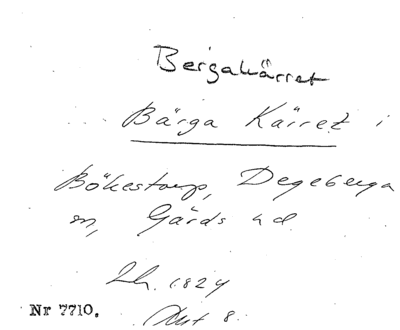 Bergakärret
Bärga Kärret i
Bökestorp, Degeberga
sn, Gärds hd
Lh. 1824
Akt 8.
Nr 7710.